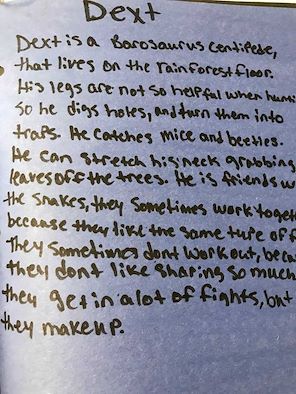 Dext
Dext is a Barosaurus centipede,
that lives on the rainforest floor.
His legs are not so helpful when
So he digs holes, and turn them into
traps. He catches mice and beetles.
He can stretch his neck grabbing
leaves off the trees. He is friends
the snakes, they sometimes work
because they like the same type of
They sometimes dont work out,
they dont like sharing so much
they get in alot of fights, but
they makeup.